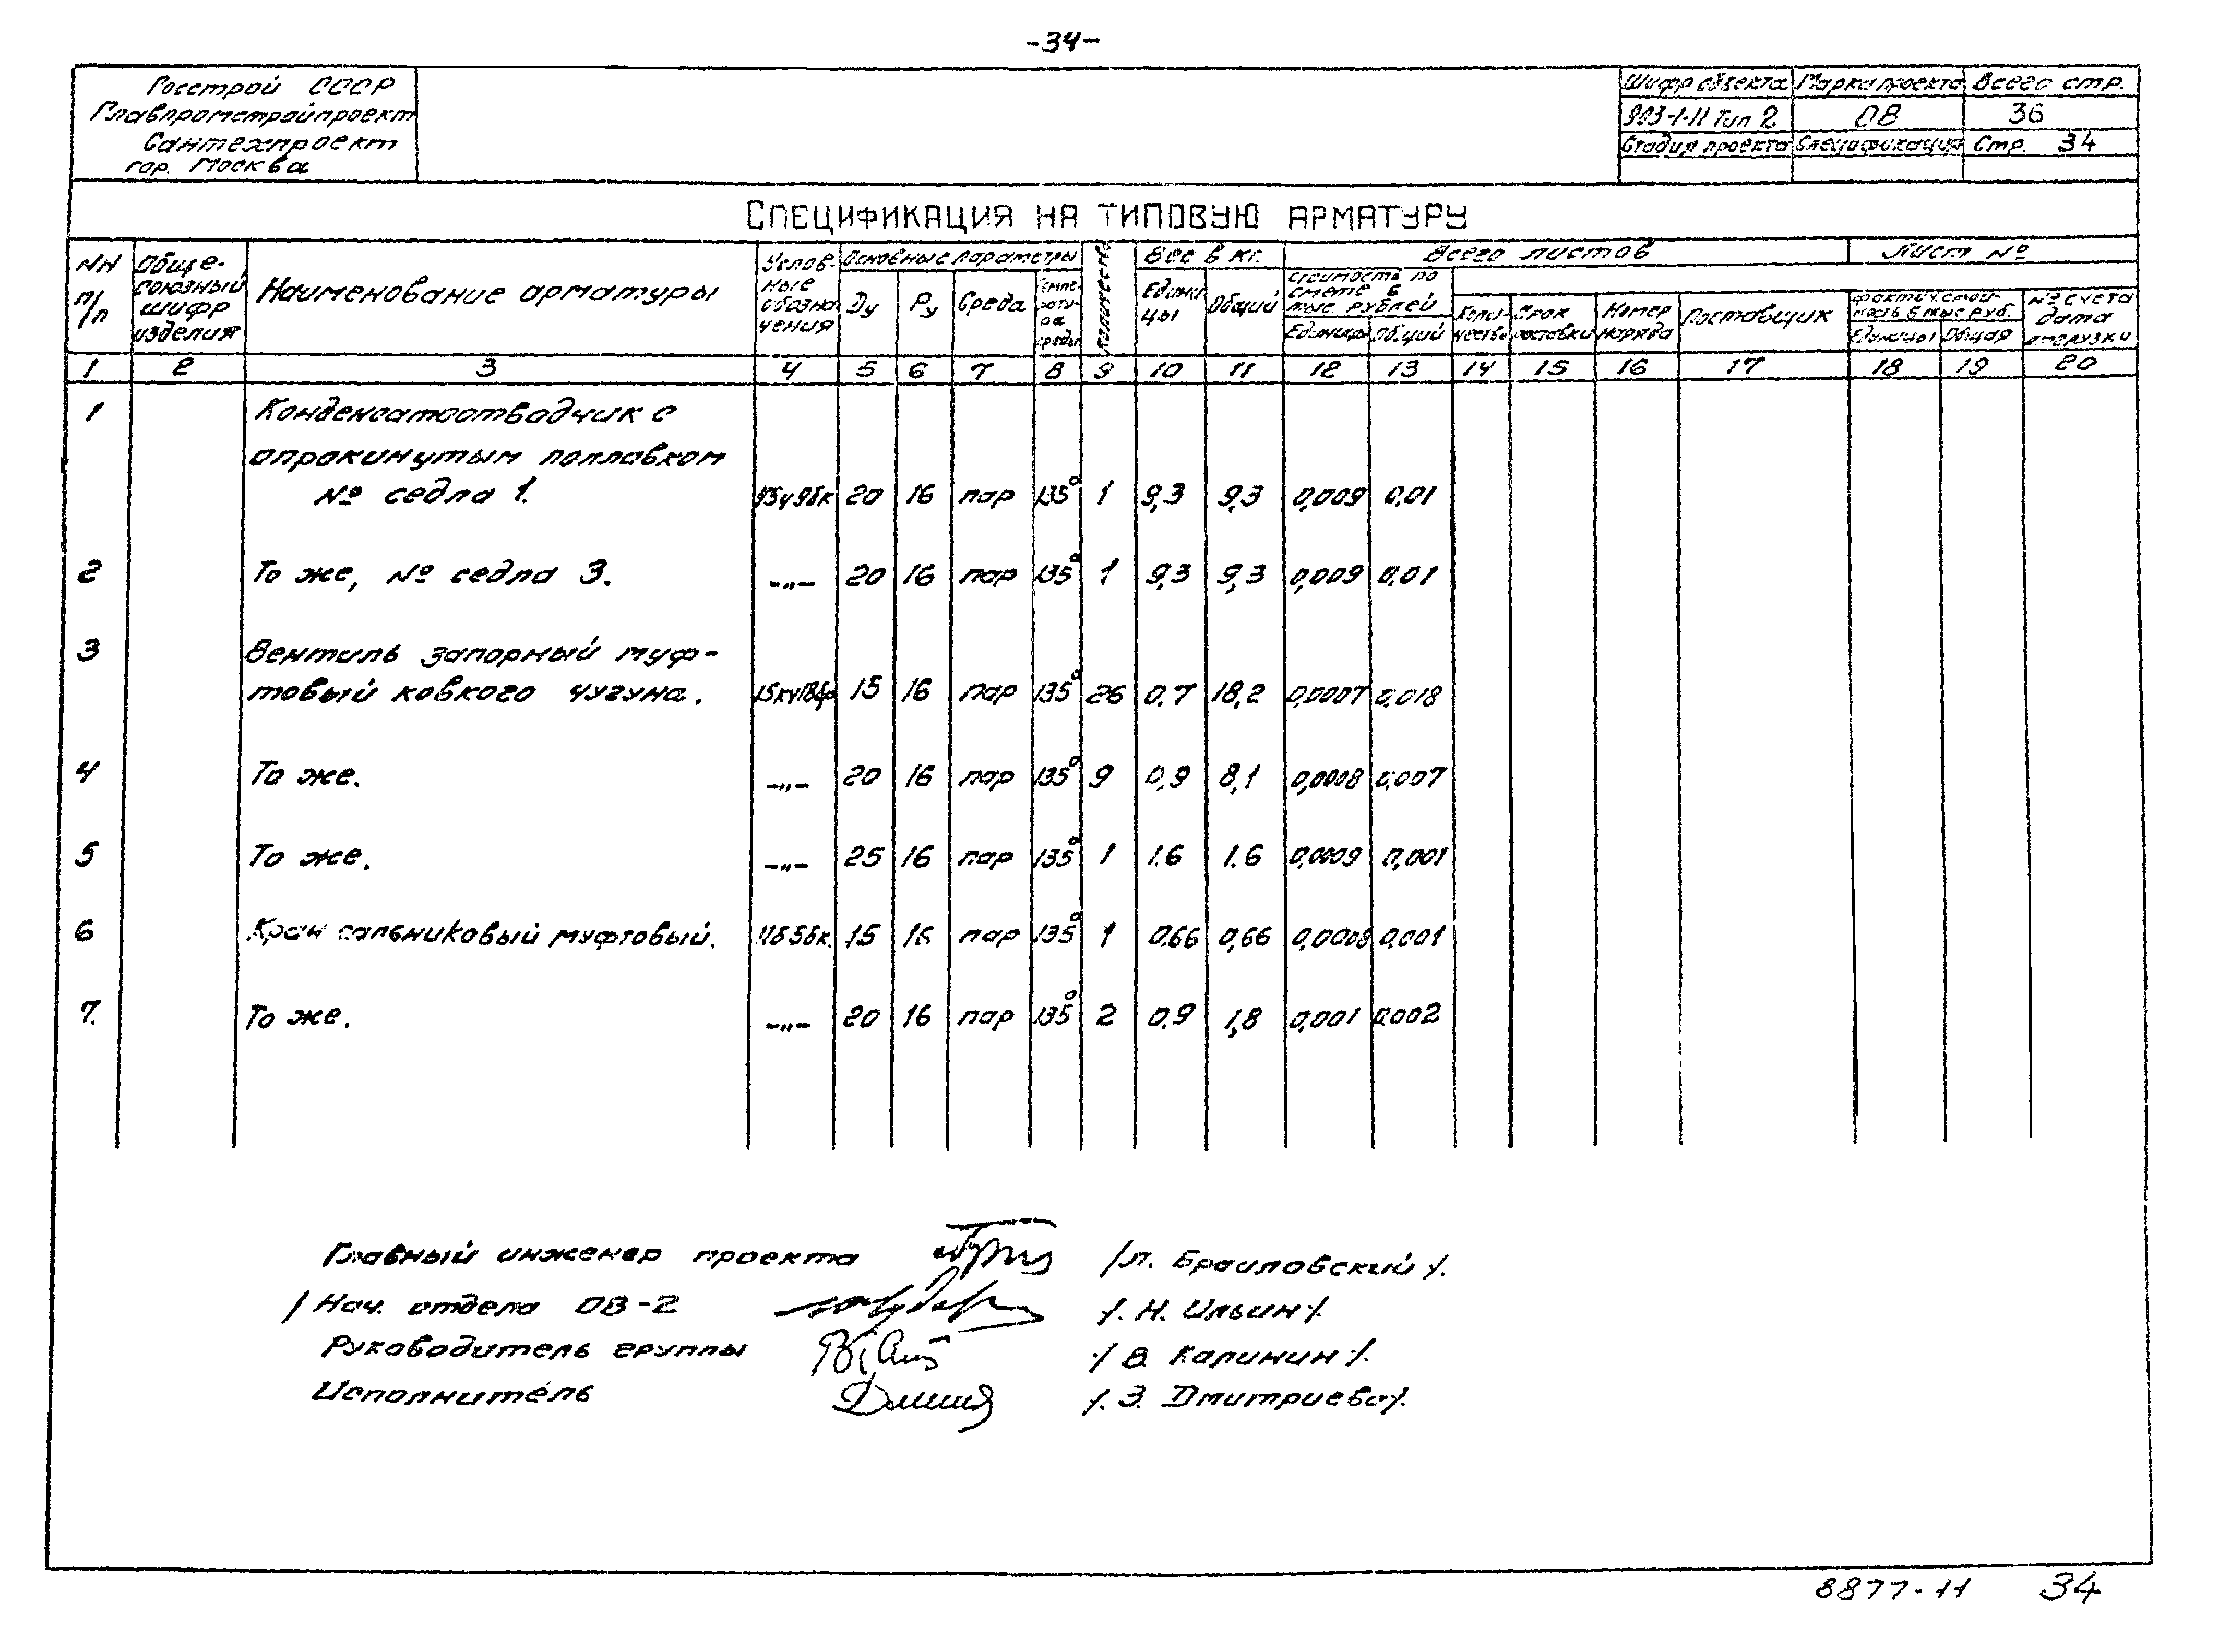 -34-
Госстрой СССР
Главпромстройпроект
Сантехпроект
гор. Москва
Шифр объекта Марка проекта Всего стр.
903-1-11 Тип 2 ОВ 36
Стадия проекта Спецификация Стр. 34
СПЕЦИФИКАЦИЯ НА ТИПОВУЮ АРМАТУРУ
NN п/п
Обще-
союзный
шифр
изделия
Наименование арматуры
Услов-
ные
обозна
чения
Основные параметры
Ду Ру Среда
Темпе-
рату-
ра
среды
Количество
Вес в кг.
Едини
цы
Общий
Всего листов
Лист №
Стоимость по
смете в
тыс. рублей
Единицы Общий
Коли-
чество
Срок
поставки
Номер
наряда
Поставщик
Фактич. стои-
мость в тыс руб.
Единицы Общая
№ счета
дата
отгрузки
1 2 3 4 5 6 7 8 9 10 11 12 13 14 15 16 17 18 19 20
1 Конденсатоотводчик с
опрокинутым поплавком
№ седла 1. 45ч9бк 20 16 пар 135° 1 9,3 9,3 0,009 0,01
2 То же, № седла 3. -„- 20 16 пар 135° 1 9,3 9,3 0,009 0,01
3 Вентиль запорный муф-
товый ковкого чугуна. 15кч18бр 15 16 пар 135° 26 0,7 18,2 0,0007 0,018
4 То же. -„- 20 16 пар 135° 9 0,9 8,1 0,0008 0,007
5 То же. -„- 25 16 пар 135° 1 1.6 1.6 0,0009 0,001
6 Кран сальниковый муфтовый. 11б5бк. 15 16 пар 135° 1 0.66 0,66 0,0008 0,001
7. То же. -„- 20 16 пар 135° 2 0,9 1,8 0,001 0,002
Главный инженер проекта /Л. Браиловский/.
/ Нач. отдела ОВ-2 /. Н. Ильин/.
Руководитель группы / В. Калинин/.
Исполнитель /. З. Дмитриева/.
8877-11 34